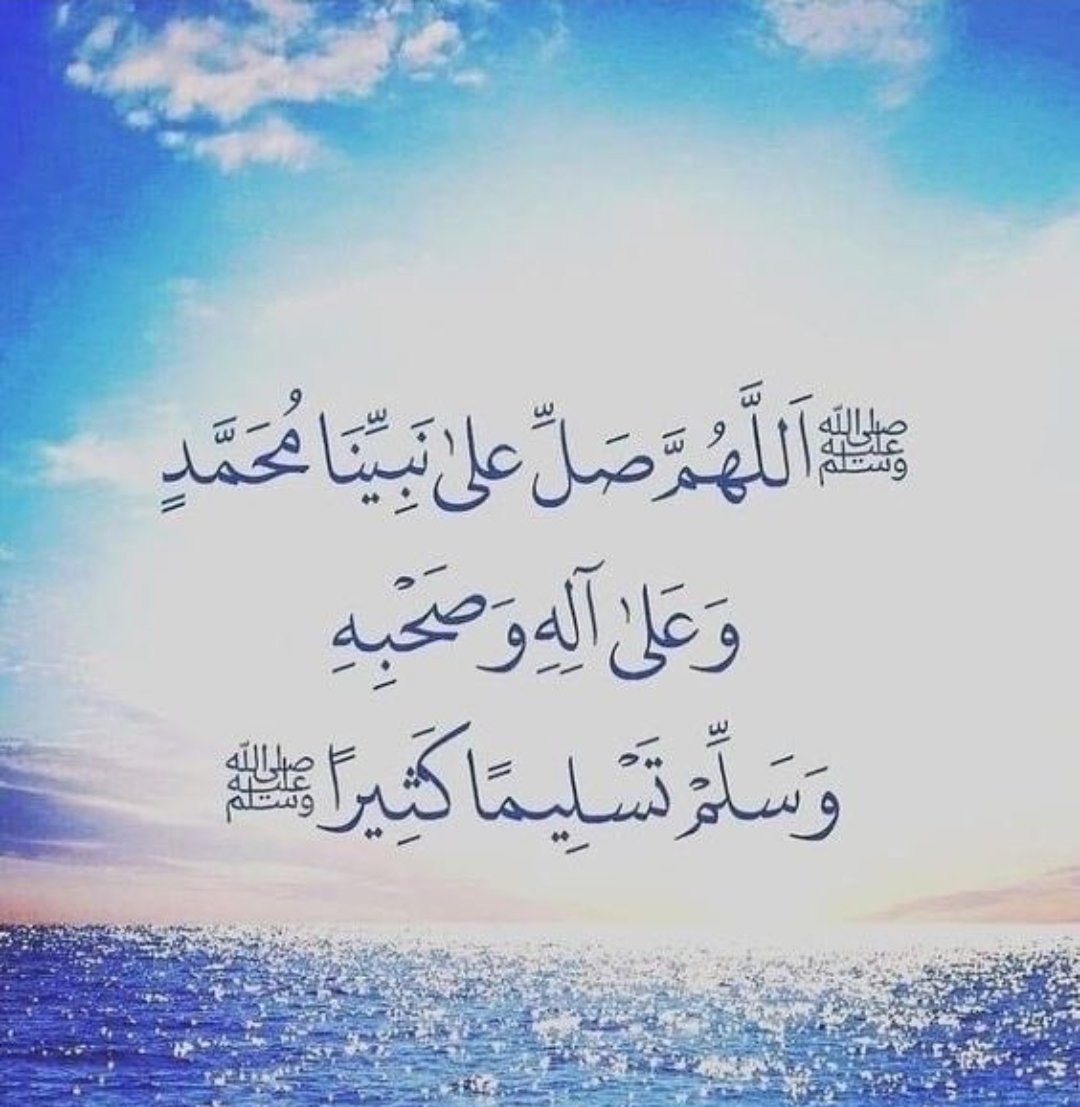 ﷺ اَللَّهُمَّ صَلِّ علىٰ نَبِيِّنَا مُحَمَّدٍ
وَعَلىٰ آلِهِ وَصَحْبِهِ
وَسَلِّمْ تَسْلِيمًا كَثِيراً ﷺ